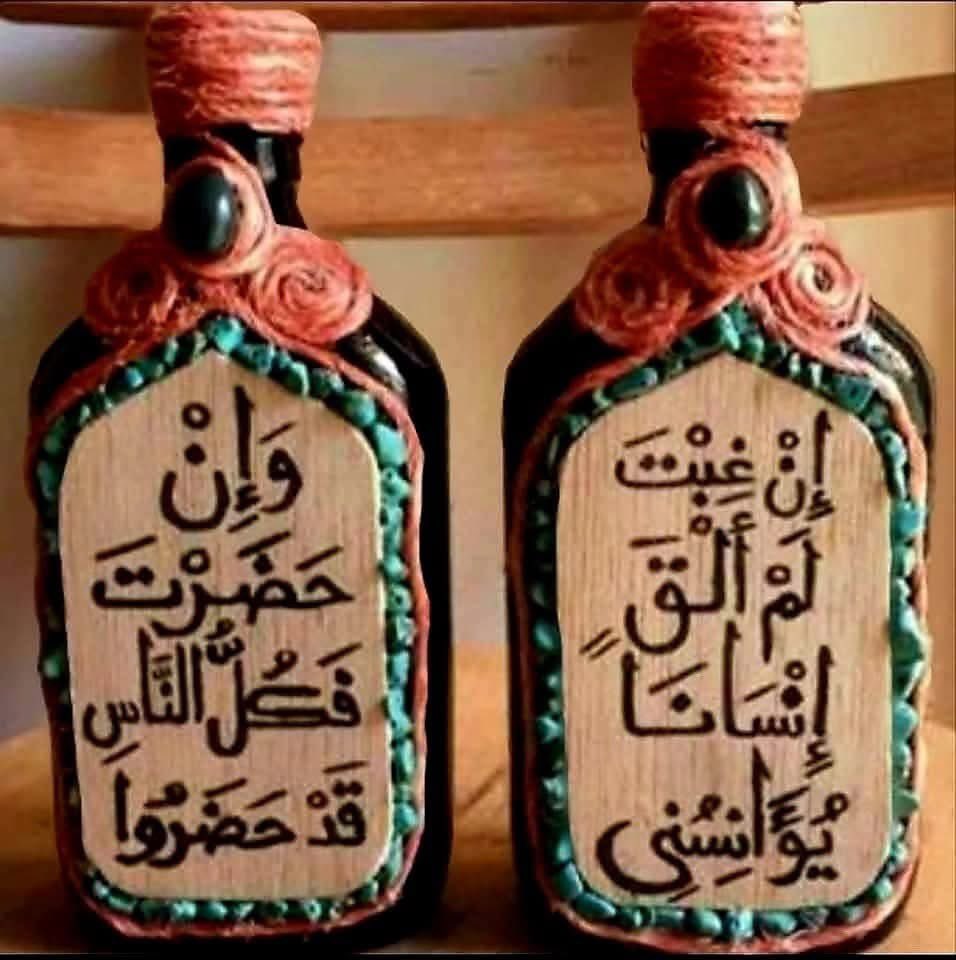 إِنْ غِبْتَ
لَمْ أَلْقَ
إِنْسَانَاً
يُؤَانِسُنِي
وَإِنْ
حَضَرْتَ
فَكُلُّ النَّاسِ
قَدْ حَضَرُوا